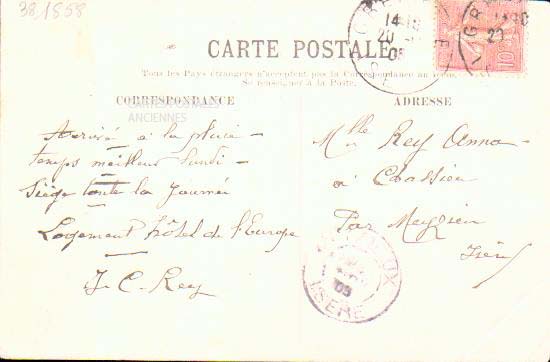 38,1858
CARTE POSTALE
Tous les Pays étrangers n'acceptent pas la Correspondance au
Se renseigner à la Poste.
CORRESPONDANCE
CARTES POSTALES
ANCIENNES
ADRESSE
Arrivé à la pluie -
temps meilleur lundi -
Siège toute la journée
Logement hôtel de l'Europe
J. C. Rey
Mlle Rey Anna
à Chassieu
Par Meyzieu
Isère
10
14
20
05
20
05
ISERE